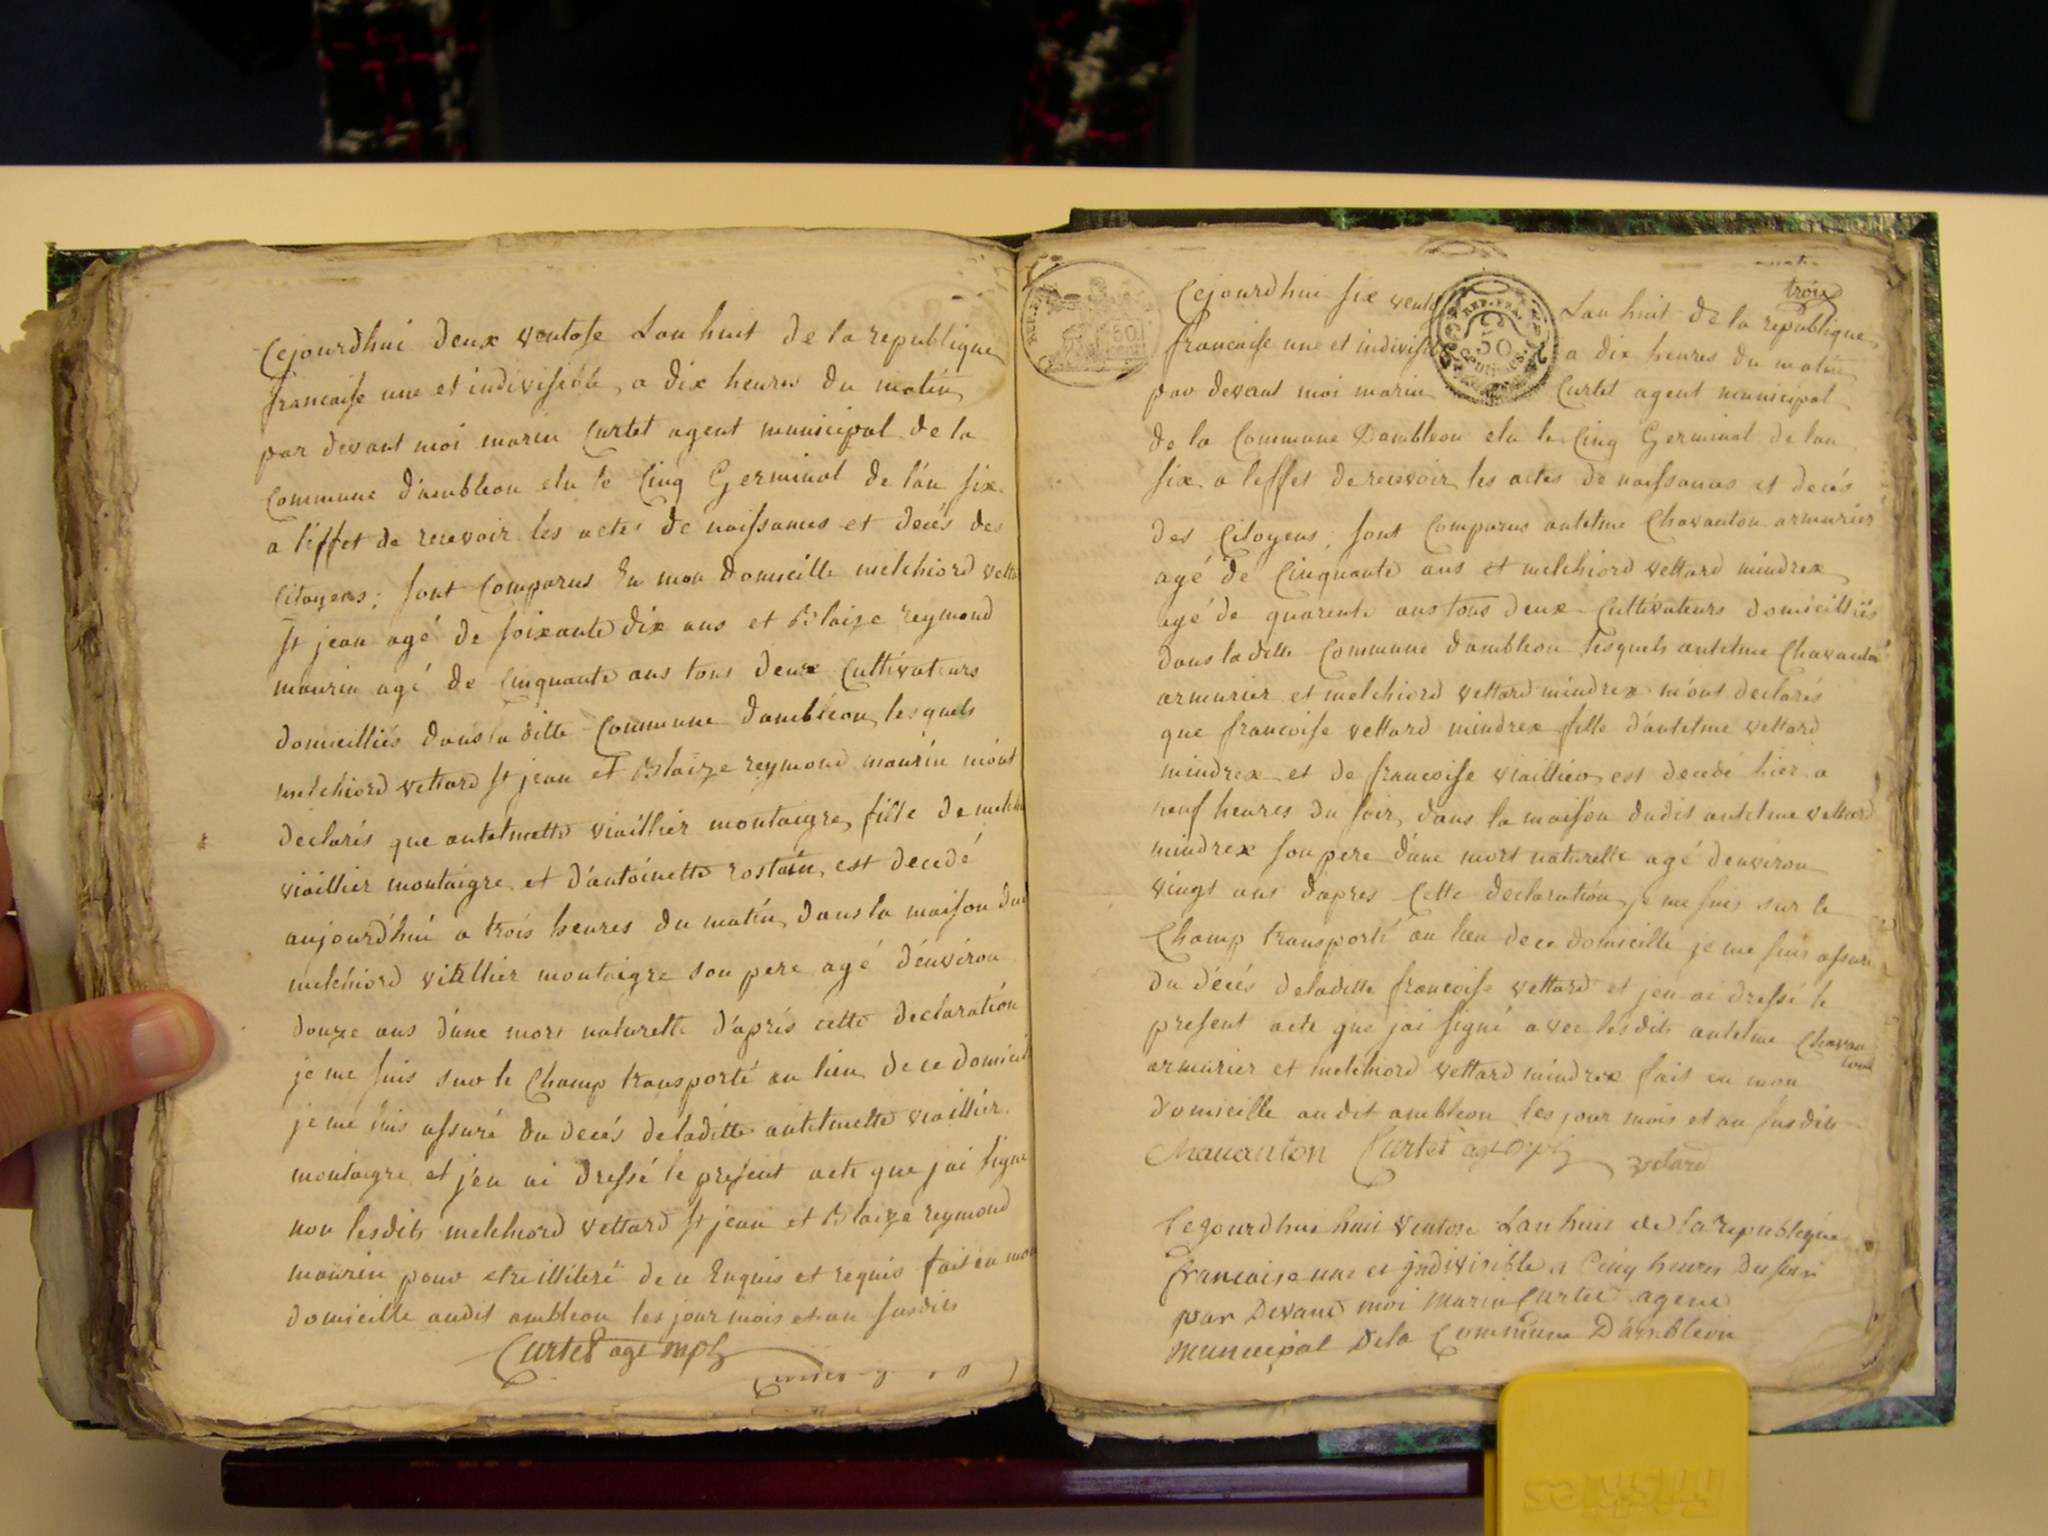 Cejourdhui deux ventose Lan huit de la republique
francaise une et indivisible, a dix heures du matin
par devant moi marin Curtet agent municipal de la
Commune d'ambleon elu le Cinq Germinal de lan six
a l'effet de recevoir les actes de naissances et decés des
Citoyens; sont Comparus En mon domicille melchiord vetta
st jean agé de soixante dix ans et Blaize reymond
maurin agé de Cinquante ans tous deux Cultivateurs
domicilliés dans la ditte Commune dambleon, lesquels
melchiord vettard st jean et Blaize reymond maurin m'ont
declarés que antelmette viaillier montaigre, fille de melchi
viaillier montaigre et d'antoinette rostain, est decedé
aujourd'hui a trois heures du matin, dans la maison dud
melchiord viallier montaigre son pere agé d'environ
douze ans d'une mort naturelle d'aprés cette declaration
je me suis sur le Champ transporté au lieu de ce domicil
je me suis assuré du decés deladitte antelmette viaillier
montaigre et j'en ai dressé le present acte que jai signe
non lesdits melchiord vettard st jean et Blaize reymond
maurin pour etre illiteré de ce Enquis et requis fait en mon
domicille audit ambleon les jour mois et an susdits
Curtet agt mpl
troix
Cejourdhui six vento Lan huit de la republique
francaise une et indivisib a dix heures du matin
par devant moi marin Curtet agent municipal
de la Commune Dambleon elu le Cinq Germinal de lan
six a leffet de recevoir les actes de naissances et decés
des Citoyens; sont Comparus antelme Chavanton armurier
agé de Cinquante ans et melchiord vettard mindrex
agé de quarente ans tous deux Cultivateurs domicilliés
dans la ditte Commune dambleon lesquels antelme Chavanton
armurier et melchiord vettard mindrex m'ont declarés
que francoise vettard mindrex fille d'antelme vettard
mindrex et de francoise viaillier, est decedé hier a
neuf heures du soir, dans la maison dudit antelme vettard
mindrex son pere d'une mort naturelle agé denviron
vingt ans d'apres Cette declaration je me suis sur le
Champ transporté au lieu de ce domicille je me suis assure
du décés deladitte francoise vettard et jen ai dressé le
present acte que jai signé avec lesdits antelme Chavan
ton
armurier et melchiord vettard mindrex fait en mon
domicille audit ambleon les jour mois et an susdits
Chavanton Curtet agt mpl vetard
Cejourdhui huit ventose Lan huit de la republique
francaise une et indivisible a Cinq heures du soir
par Devant moi marin Curtet agent
municipal de la Commune D'ambleon